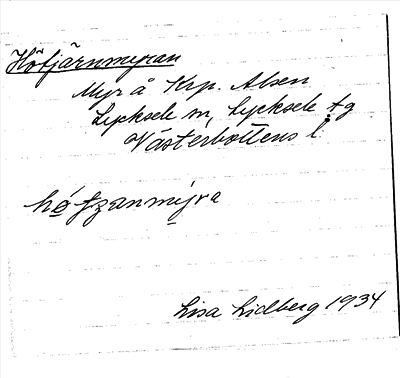 Hötjärnmyran
Myr å Krp. Alsen
Lycksele m, Lycksele tg
Västerbottens l
Lisa Lidberg 1934